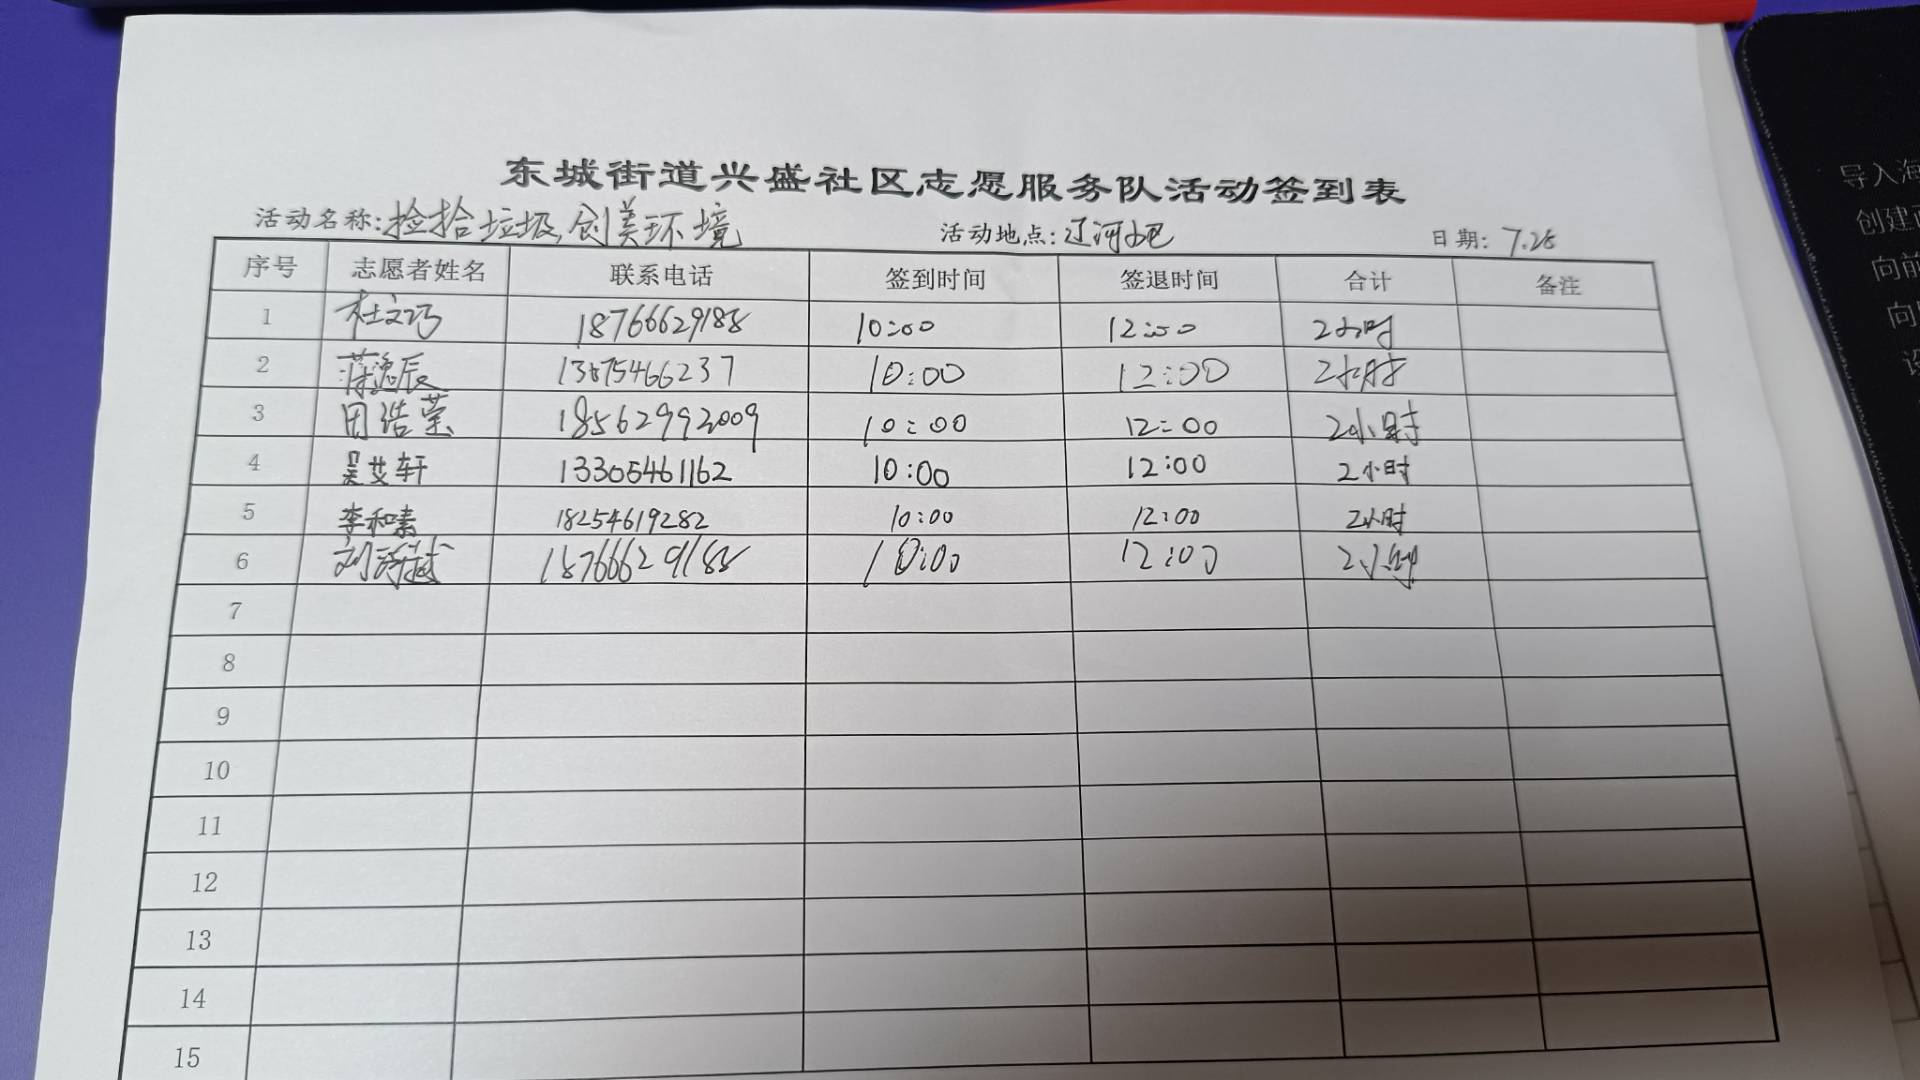 东城街道兴盛社区志愿服务队活动签到表
活动名称:捡拾垃圾,创美环境 活动地点:辽河 日期: 7.28
序号 志愿者姓名 联系电话 签到时间 签退时间 合计 备注
1 杜文巧 18766629188 10:00 12:00 2小时
2 逸辰 13875466237 10:00 12:00 2小时
3 田浩 18562992009 10:00 12:00 2小时
4 吴艾轩 13305461162 10:00 12:00 2小时
5 李和素 18254619282 10:00 12:00 2小时
6 刘 18766629188 10:00 12:00 2小时
7
8
9
10
11
12
13
14
15
导入海
创建
向前
向
设